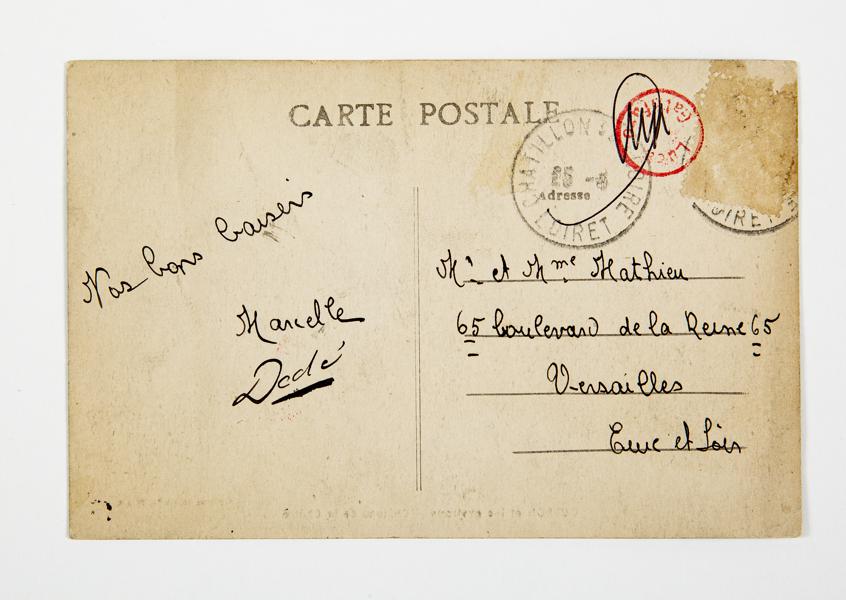 CARTE POSTALE
CHATILLON S
25 -8
LOIRE
LOIRET
Adresse
OIRET
Nos bons baisers
Marcelle
Dédé
Mr et Mme Mathieu
65 boulevard de la Reine 65
Versailles
et